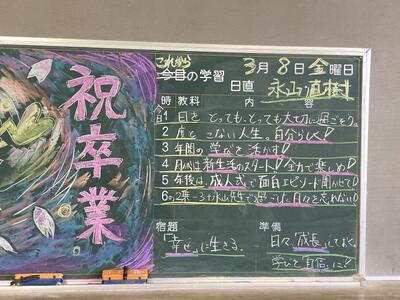 祝卒業
これからの学習
3月8日金曜日
日直 永山直樹
時 教科 内 容
1 日を とっても、とっても大切に過ごそう。
2 度と こない人生。自分らしく!
3 年間の 学びを活かす!
4 月以は 新生活のスタート!全力で楽しめ!
5 年後は、成人式で面白エピソード聞かせて!
6の2
宿題
「幸せ」に生きる。
準備
日々、成長しておく。
学びを「自信」に!